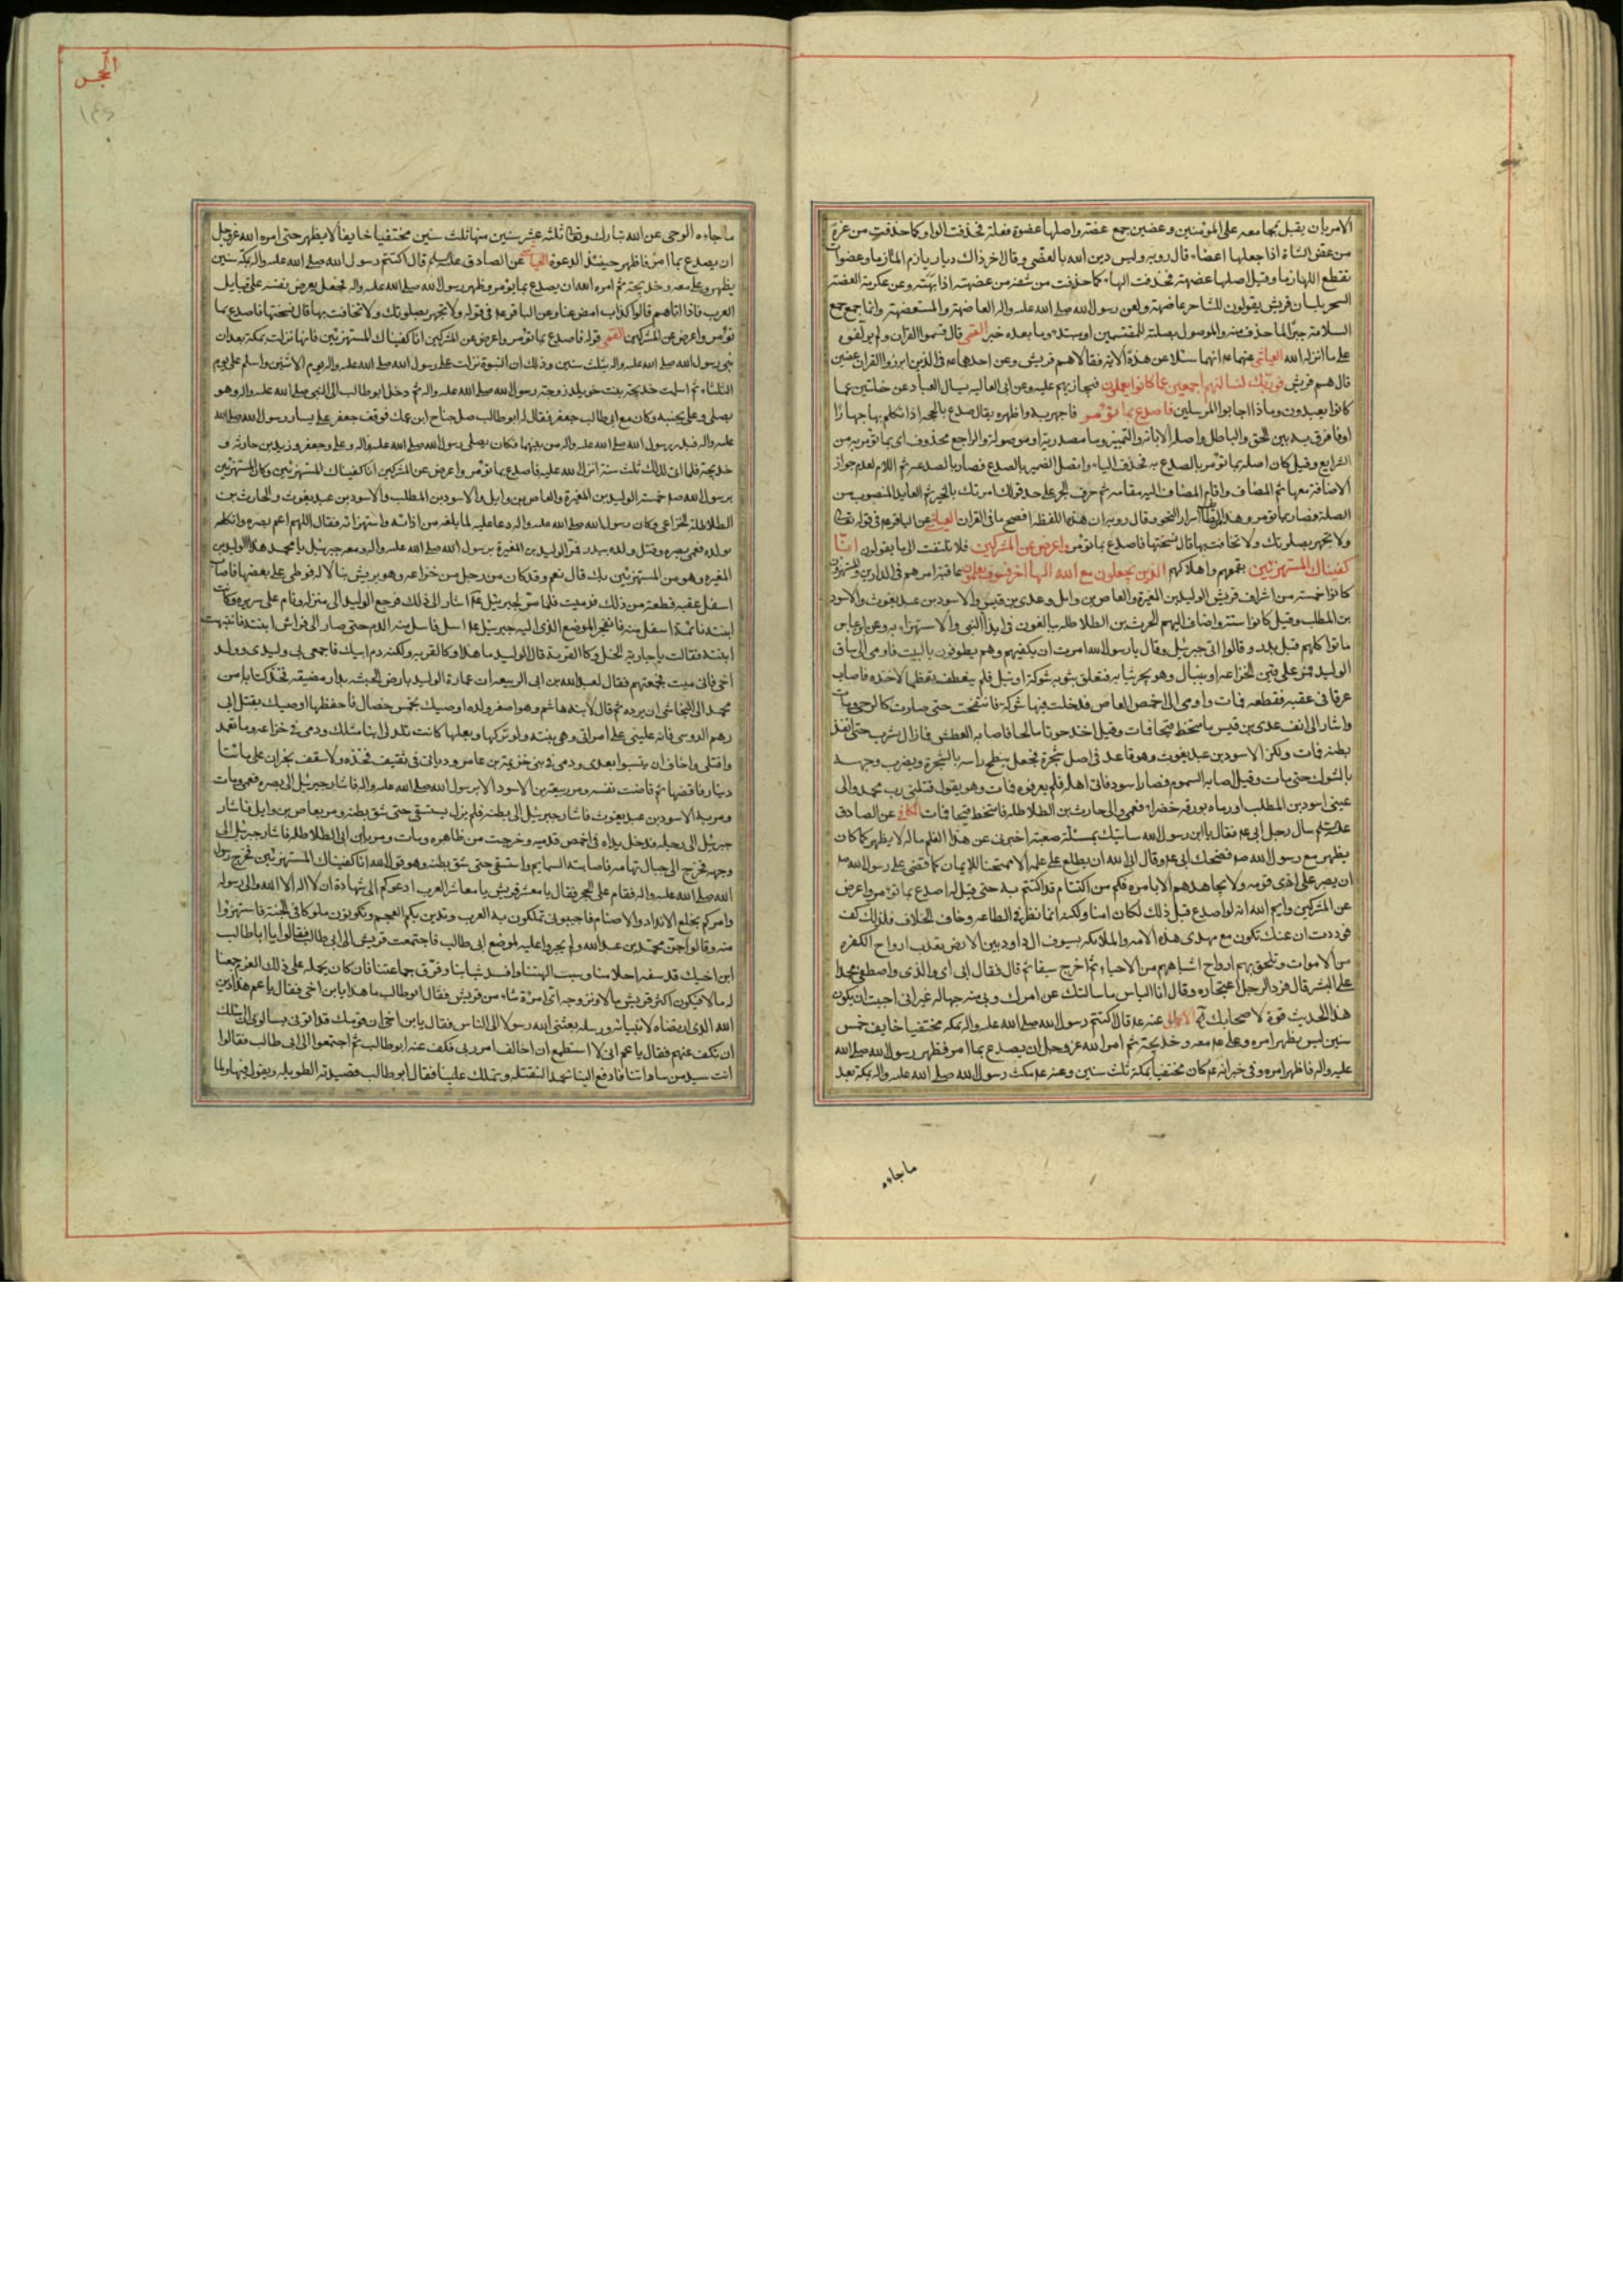 الامر بان يقبل بمجامعه على المؤمنين وعضين جمع عضة واصلها عضوة فعلة فحذفت الواو كما حذفت من عزة
من عضى الشاة اذا جعلها اعضاء قال روبه وليس دين الله بالمعضى وقال اخر
تقطع اللهازما وقيل اصلها عضهة فحذفت الهاء كما حذفت من شفة من عضهته اذا بهته وعن عكرمة العضة
السحر بلسان قريش يقولون للساحر عاضهة ولعن رسول الله صلى الله عليه واله العاضهة والمستعضهة وانما جمع جمع
السلامة جبرا لما حذف منه والموصول بصلته للمقتسمين او مبتدا وما بعده خبر القمي قال قسموا القران ولم يولفوه
على ما انزله الله العياشي عنهما ع انهما سئلا عن هذه الاية فقالا هم قريش وعن احدهما ع في الذين ابرزوا القران عضين
قال هم قريش فوربك لنسالنهم اجمعين عما كانوا يعملون فيجازيهم عليه وعن ابي العاليه يسال العباد عن خلتين عما
كانوا يعبدون وماذا اجابوا المرسلين فاصدع بما تؤمر فاجهر به واظهره يقال صدع بالحجة اذا تكلم بها جهارا
او فافرق به بين الحق والباطل واصله الابانة والتميز وما مصدرية او موصولة والراجع محذوف اي بما تؤمر به من
الشرايع وقيل كان اصله بما تؤمر بالصدع به فحذف الباء واتصل الضمير بالصدع فصار بالصدعه ثم اللام لعدم جواز
الاضافة معها ثم المضاف واقام المضاف اليه مقامه ثم حرف الجر على حد قولك امرتك بالخير ثم العايد المنصوب من
الصلة فصار بما تؤمر وهذا من اسرار النحو وقال روبه ان هذه اللفظة افصح ما في القران العياشي عن الباقر ع في قوله تعالى
ولا تجهر بصلوتك ولا تخافت بها قال نسختها فاصدع بما تؤمر واعرض عن المشركين فلا تلتفت الى ما يقولون انا
كفيناك المستهزئين بقمعهم واهلاكهم الذين يجعلون مع الله الها اخر فسوف يعلمون عاقبة امرهم في الدارين والمستهزؤن
كانوا خمسة من اشراف قريش الوليد بن المغيرة والعاص بن وايل وعدي بن قيس والاسود بن عبد يغوث والاسود
بن المطلب وقيل كانوا ستة واضاف اليهم الحرث بن الطلاطله يبالغون في ايذاء النبي والاستهزاء به وعن ابن عباس
ماتوا كلهم قبل بدر وقالوا اتى جبرئيل وقال يا رسول الله امرت ان يكفيهم وهم يطوفون بالبيت فاومى الى ساق
الوليد فمر على قين لخزاعه او بنبال وهو يجر ثيابه فتعلق بثوبه شوكة او نبل فلم ينعطف تعظما لاخذه فاصاب
عرقا في عقبه فقطعه فمات واومى الى اخمص العاص فدخلت فيها شوكة فانتفخت حتى صارت كالرحى ومات
واشار الى انف عدي بن قيس فامتخط قيحا فمات وقيل اخذ حوتا مالحا فاصابه العطش فما زال يشرب حتى انقد
بطنه فمات ولكز الاسود بن عبد يغوث وهو قاعد في اصل شجرة فجعل ينطح راسه بالشجرة ويضرب وجهه
بالشوك حتى مات وقيل اصابه السموم فصار اسود فاتى اهله فلم يعرفوه فمات وهو يقول قتلني رب محمد والى
عيني اسود بن المطلب او رماه بورقه خضراء فعمي والى حارث بن الطلاطله فامتخط قيحا فمات الكافي عن الصادق
عليه السلم سال رجل ابي ع فقال يا ابن رسول الله ساتيك بمسئلة صعبة اخبرني عن هذا العلم ماله لا يظهر كما كان
يظهر مع رسول الله ص فضحك ابي ع وقال ابى الله ان يطلع على علمه الا ممتحنا للايمان كما قضى على رسول الله ص
ان يصبر على اذى قومه ولا يجاهدهم الا بامره فكم من اكتتام قد اكتتم به حتى قيل له اصدع بما تؤمر واعرض
عن المشركين وايم الله انه لو اصدع قبل ذلك لكان امنا ولكنه انما نظر في الطاعه وخاف الخلاف فلذلك كف
فوددت ان عينك تكون مع مهدي هذه الامه والملائكه بسيوف ال داود بين الارض تعذب ارواح الكفرة
من الاموات وتلحق بهم ارواح اشباههم من الاحياء ثم اخرج سيفا ثم قال فقال ابي اي والذي واصطفى محمدا
على البشر قال فرد الرجل اعتجاره وقال انا الياس ما سالتك عن امرك وبي منه جهاله غير اني احببت ان يكون
هذا الحديث قوة لاصحابك عنه ع قال اكتتم رسول الله صلى الله عليه واله بمكه مختفيا خايفا خمس
سنين ليس يظهر امره وعلي ع معه وخديجة ثم امر الله عز وجل ان يصدع بما امر فظهر رسول الله صلى الله
عليه واله فاظهر امره وفي خبر انه ع كان مختفيا بمكة ثلث سنين وعنه ع مكث رسول الله صلى الله عليه واله بمكة بعد
ما جاءه
الحجر
ما جاءه الوحي عن الله تبارك وتعالى ثلثة عشر سنين منها ثلث سنين مختفيا خايفا لا يظهر حتى امره الله عز وجل
ان يصدع بما امر فاظهر حينئذ الدعوة العياشي عن الصادق عليه السلم قال اكتتم رسول الله صلى الله عليه واله بمكة سنين
يظهر وعلي معه وخديجة ثم امره الله ان يصدع بما يؤمر وظهر رسول الله صلى الله عليه واله فجعل يعرض نفسه على قبايل
العرب فاذا اتاهم قالوا كذاب امض عنا وعن الباقر ع في قوله ولا تجهر بصلوتك ولا تخافت بها قال نسختها فاصدع بما
تؤمر واعرض عن المشركين القمي قوله فاصدع بما تؤمر واعرض عن المشركين انا كفيناك المستهزئين فانها نزلت بمكة بعد ان
نبي رسول الله صلى الله عليه واله بثلث سنين وذلك ان النبوة نزلت على رسول الله صلى الله عليه واله يوم الاثنين واسلم علي يوم
الثلثاء ثم اسلمت خديجة بنت خويلد زوجة رسول الله صلى الله عليه واله ثم دخل ابو طالب الى النبي صلى الله عليه واله وهو
يصلي وعلي بجنبه وكان مع ابي طالب جعفر فقال له ابو طالب صل جناح ابن عمك فوقف جعفر على يسار رسول الله صلى الله
عليه واله فبدر رسول الله صلى الله عليه واله من بينهما فكان يصلي رسول الله صلى الله عليه واله وعلي وجعفر وزيد بن حارثه و
خديجة فلما اتى لذلك ثلث سنة انزل الله عليه فاصدع بما تؤمر واعرض عن المشركين انا كفيناك المستهزئين وكان المستهزئين
برسول الله ص خمسة الوليد بن المغيرة والعاص بن وايل والاسود بن المطلب والاسود بن عبد يغوث والحارث بن
الطلاطلة الخزاعي وكان رسول الله صلى الله عليه واله دعا عليه لما بلغه من اذاته واستهزائه فقال اللهم اعم بصره واثكله
بولده فعمي بصره وقتل ولده ببدر فمر الوليد بن المغيرة برسول الله صلى الله عليه واله ومعه جبرئيل يا محمد هذا الوليد بن
المغيره وهو من المستهزئين بك قال نعم وقد كان مر رجل من خزاعه وهو يريش نبالا له فوطى على بعضها فاصاب
اسفل عقبه قطعة من ذلك فدميت فلما مر بجبرئيل ع اشار الى ذلك فرجع الوليد الى منزله ونام على سريره وكانت
ابنته نائمة اسفل منه فانفجر الموضع الذي اشار اليه جبرئيل ع اسفل فسال منه الدم حتى صار الى فراش ابنته فانتبهت
ابنته فقالت يا جارية انحل وكاء القربة قال الوليد ما هذا وكاء القربه ولكنه دم ابيك فاجمعي لي ولدي وولد
اخي فاني ميت فجمعتهم فقال لعبد الله بن ابي الربيعه ان عمارة الوليد بارض الحبشه بدار مضيقه فخذ كتابا من
محمد الى النجاشي ان يرده ثم قال لابنه هاشم وهو اصغر ولده اوصيك بخمس خصال فاحفظها اوصيك بقتل ابي
رهم الدوسي فانه غلبني على امراتي وهي بنته ولو تركها وبعلها كانت تلد لي ابنا مثلك ودمي في خزاعه وما تعمد
واقتلي واخاف ان ينسوا بعدي ودمي في بني خزيمة بن عامر ودياتي في ثقيف فخذه ولاسقف نجران علي مائتا
دينار فاقضها ثم فاضت نفسه ومر ربيعة بن الاسود الا برسول الله صلى الله عليه واله فاشار جبرئيل الى بصره فعمي ومات
ومر به الاسود بن عبد يغوث فاشار جبرئيل الى بطنه فلم يزل يستسقي حتى شق بطنه ومر بعاص بن وايل فاشار
جبرئيل الى رجليه فدخل يداه في اخمص قدميه وخرجت من ظاهره ومات ومر ابن ابي الطلاطله فاشار جبرئيل الى
وجهه فخرج الى جبال تهامه فاصابته السمايم واستسقى حتى شق بطنه وهو قول الله انا كفيناك المستهزئين فخرج رسول
الله صلى الله عليه واله فقام على الحجر فقال يا معشر قريش يا معاشر العرب ادعوكم الى شهادة ان لا اله الا الله واني رسوله
وامركم بخلع الانداد والاصنام فاجيبوني تملكون به العرب وتدين بكم العجم وتكونون ملوكا في الجنة فاستهزؤا
منه وقالوا جن محمد بن عبد الله ولم يجروا عليه لموضع ابي طالب فاجتمعت قريش الى ابي طالب فقالوا يا ابا طالب
ابن اخيك قد سفه احلامنا وسب الهتنا وافسد شباننا وفرق جماعتنا فان كان يحمله على ذلك العزم جمعنا
له مالا فيكون اكثر قريش مالا ونزوجه اي امرأة شاء من قريش فقال ابو طالب ما هذا يا بن اخي فقال يا عم هذا دين
الله الذي ارتضاه لانبيائه ورسله بعثني الله رسولا الى الناس فقال يا بن اخي ان قومك قد اتوني يسالوني ان اسئلك
ان تكف عنهم فقال يا عم اني لا استطيع ان اخالف امر ربي فكف عنه ابو طالب ثم اجتمعوا الى ابي طالب فقالوا
انت سيد من ساداتنا فادفع الينا محمدا لنقتله وتملك علينا فقال ابو طالب قصيدته الطويله ويقول فيها ولما